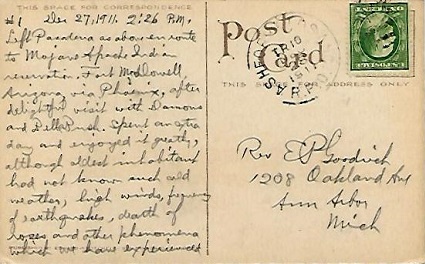 THIS SPACE FOR CORRESPONDENCE
#1 Dec 27, 1911. 2:26 P.M.
Left Pasadena as above en route
to Mojave Apache Indian
reservation, Fort McDowell
Arizona via Phoenix, after
delightful visit with Damons
and Bella Rush. Spent an extra
day and enjoyed it greatly,
although oldest inhabitant
had not known such cold
weather, high winds, frequency
of earthquakes, dearth of
roses and other phenomena
which we have experienced
Post Card
THIS SPACE FOR ADDRESS ONLY
R.P.O.
Rev E P Goodrich
1208 Oakland Ave
Ann Arbor
Mich